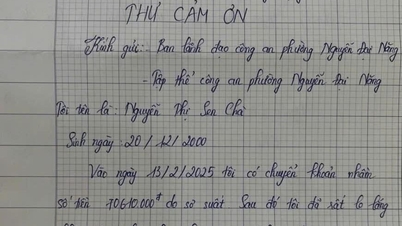 THƯ CẢM ƠN
Kính gửi: - Ban lãnh đạo công an phường Nguyễn Đại Năng
- Tập thể công an phường Nguyễn Đại Năng
Tôi tên là: Nguyễn Thị Sen Chà
Sinh ngày: 20/12/2000
Vào ngày 13/2/2025 tôi có chuyển khoản nhầm
số tiền 70610.000đ do sơ suất. Sau đó tôi đã rất lo lắng